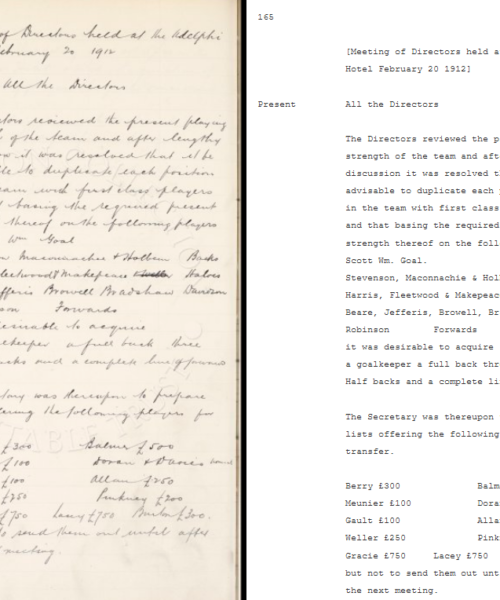 of Directors held at the Adelphi
February 20 1912
All the Directors
ctors reviewed the present playing
of the team and after lengthy
it was resolved that it be
to duplicate each position
eam with first class players
basing the required present
thereof on the following players
Wm Goal
Maconnachie & Holbem Backs
Fleetwood & Makepeace Halves
Jefferis Browell Bradshaw Davidson
son Forwards
desirable to acquire
keeper a full back three
acks and a complete line of forward
tary was thereupon to prepare
ffering the following players for
£300 Balmer £500
£100 Doran & Davies
£100 Allan £250
£250 Pinkney £200
£750 Lacey £750 Burton £300.
to send them out until after
meeting.
165
[Meeting of Directors held a
Hotel February 20 1912]
Present All the Directors
The Directors reviewed the p
strength of the team and aft
discussion it was resolved t
advisable to duplicate each
in the team with first class
and that basing the required
strength thereof on the foll
Scott Wm. Goal.
Stevenson, Maconnachie & Hol
Harris, Fleetwood & Makepeac
Beare, Jefferis, Browell, Br
Robinson Forwards
it was desirable to acquire
a goalkeeper a full back thr
Half backs and a complete li
The Secretary was thereupon
lists offering the following
transfer.
Berry £300 Balm
Meunier £100 Dora
Gault £100 Alla
Weller £250 Pink
Gracie £750 Lacey £750
but not to send them out unt
the next meeting.